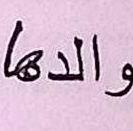 والدها